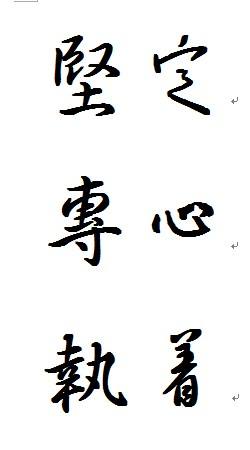 堅定
專心
執着